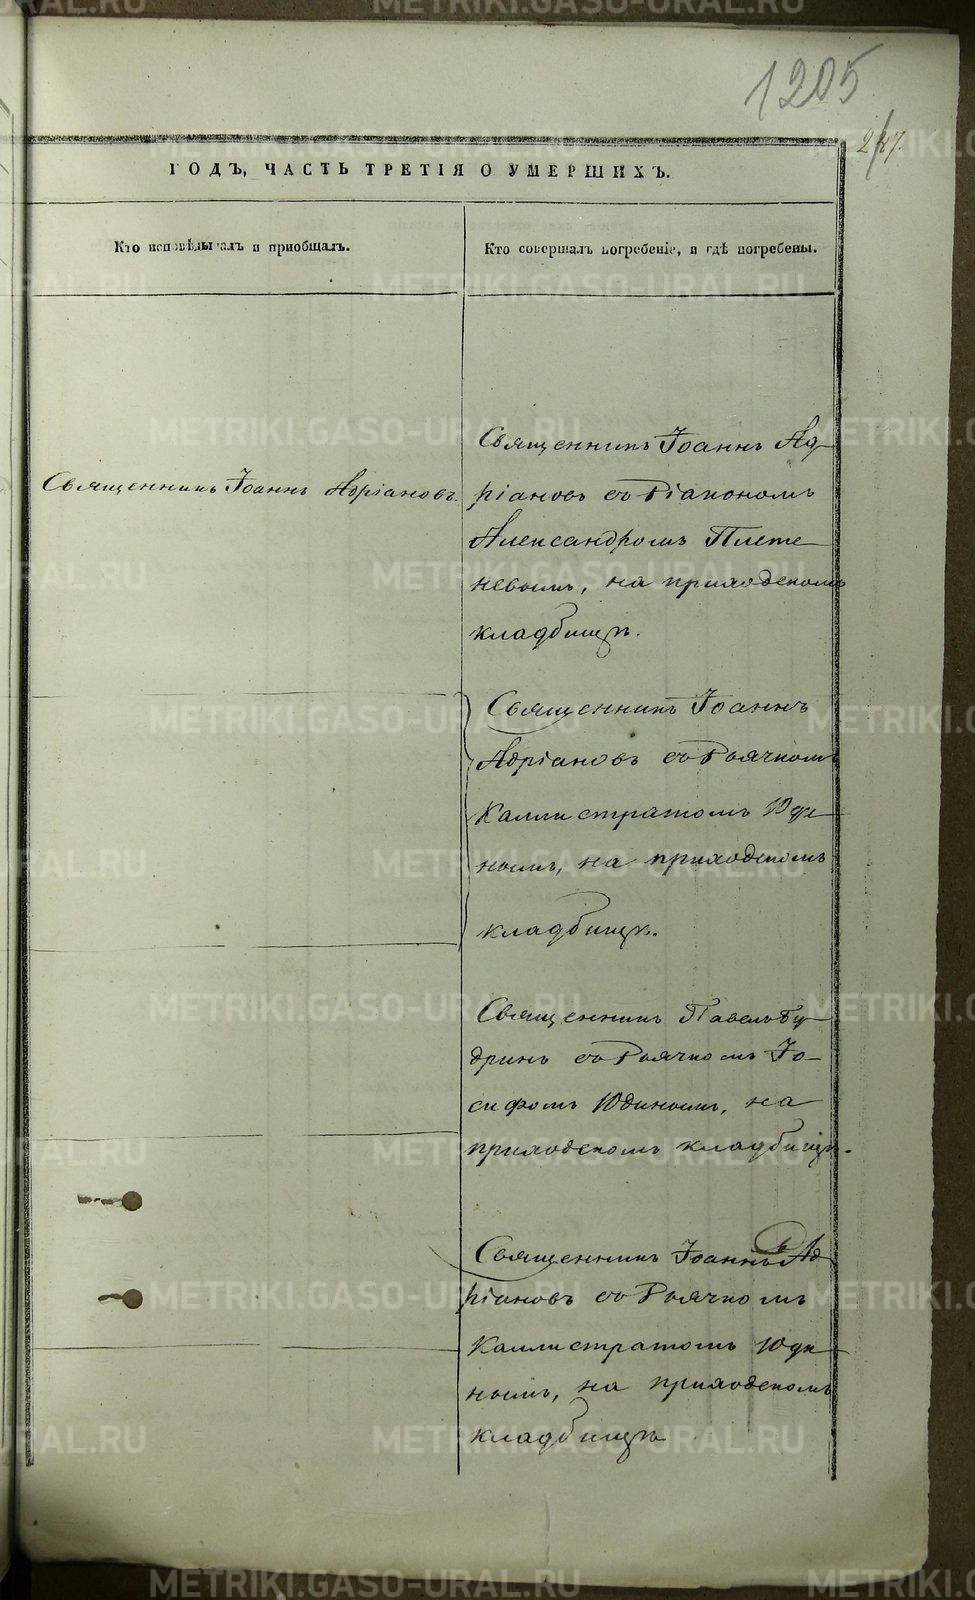 1205
247.
ГОДЪ, ЧАСТЬ ТРЕТІЯ О УМЕРШИХЪ.
Кто исповѣдывалъ и приобщалъ.
Кто совершалъ погребеніе, и гдѣ погребены.
Священникъ Іоаннъ Адріановъ.
Священникъ Іоаннъ Ад-
ріановъ съ Діакономъ
Александромъ Плете-
невымъ, на приходскомъ
кладбищѣ.
Священникъ Іоаннъ
Адріановъ съ Дьячкомъ
Каллистратомъ Юди-
нымъ, на приходскомъ
кладбищѣ.
Священникъ Павелъ Бу-
дринъ съ Дьячкомъ Іо-
сифомъ Юдинымъ, на
приходскомъ кладбищѣ.
Священникъ Іоаннъ Ад-
ріановъ съ Дьячкомъ
Каллистратомъ Юди-
нымъ, на приходскомъ
кладбищѣ
METRIKI.GASO-URAL.RU